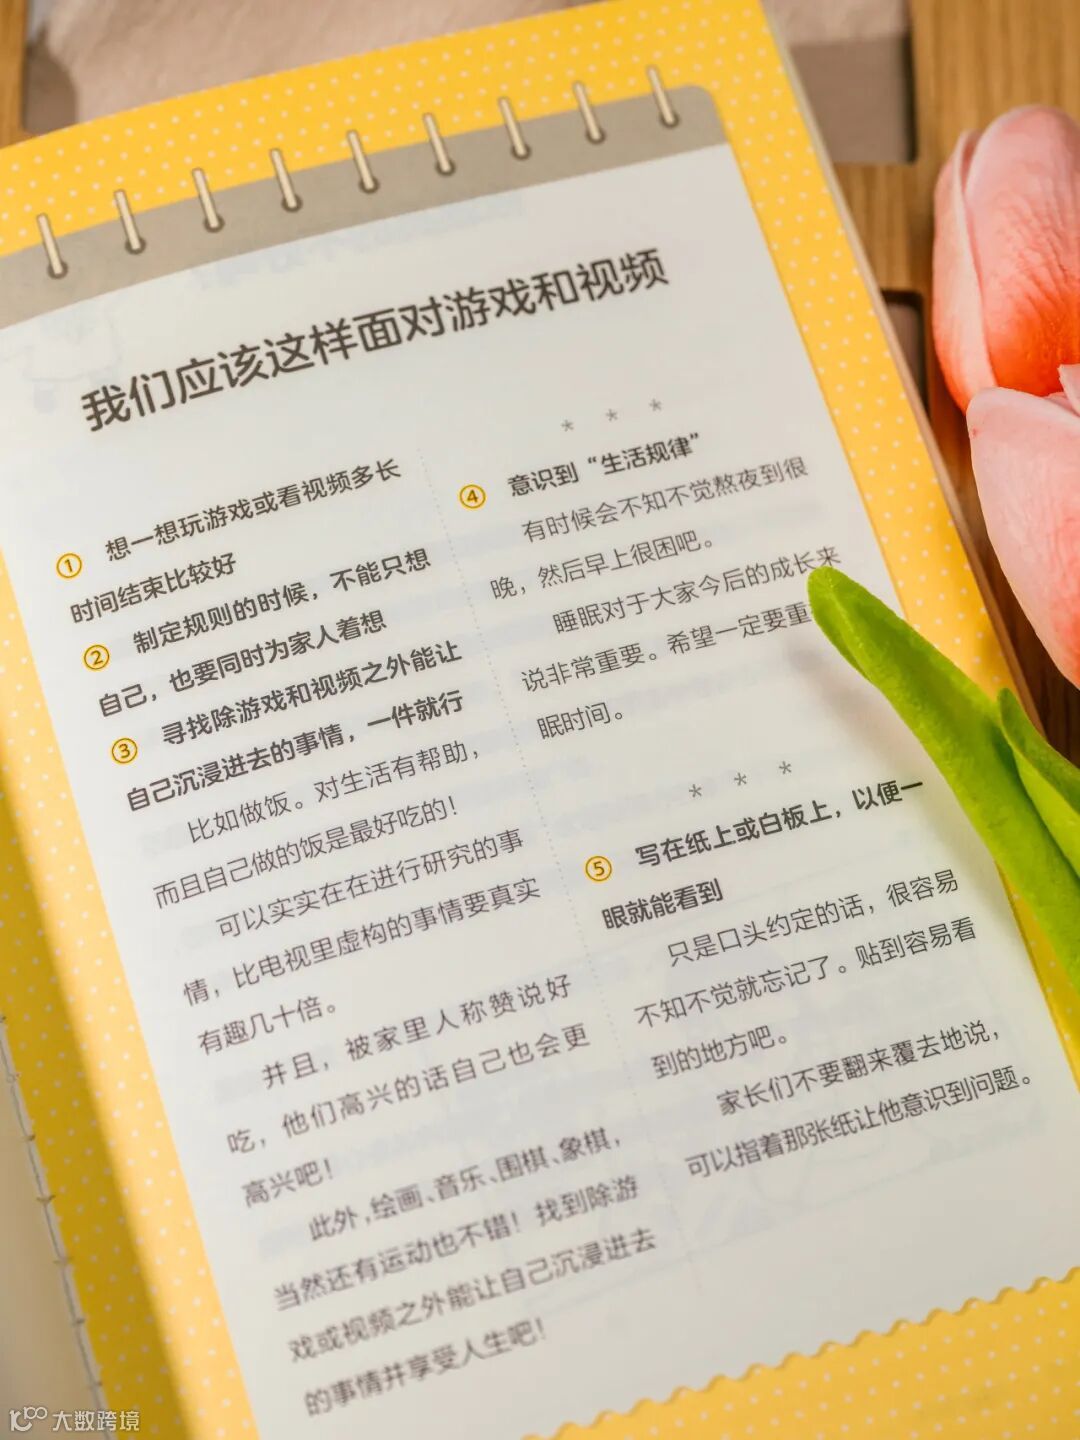 我们应该这样面对游戏和视频
① 想一想玩游戏或看视频多长
时间结束比较好
② 制定规则的时候，不能只想
自己，也要同时为家人着想
③ 寻找除游戏和视频之外能让
自己沉浸进去的事情，一件就行
比如做饭。对生活有帮助，
而且自己做的饭是最好吃的！
可以实实在在进行研究的事
情，比电视里虚构的事情要真实
有趣几十倍。
并且，被家里人称赞说好
吃，他们高兴的话自己也会更
高兴吧！
此外，绘画、音乐、围棋、象棋，
当然还有运动也不错！找到除游
戏或视频之外能让自己沉浸进去
的事情并享受人生吧！
* * *
④ 意识到“生活规律”
有时候会不知不觉熬夜到很
晚，然后早上很困吧。
睡眠对于大家今后的成长来
说非常重要。希望一定要重
眠时间。
* * *
⑤ 写在纸上或白板上，以便一
眼就能看到
只是口头约定的话，很容易
不知不觉就忘记了。贴到容易看
到的地方吧。
家长们不要翻来覆去地说，
可以指着那张纸让他意识到问题。
大数跨境